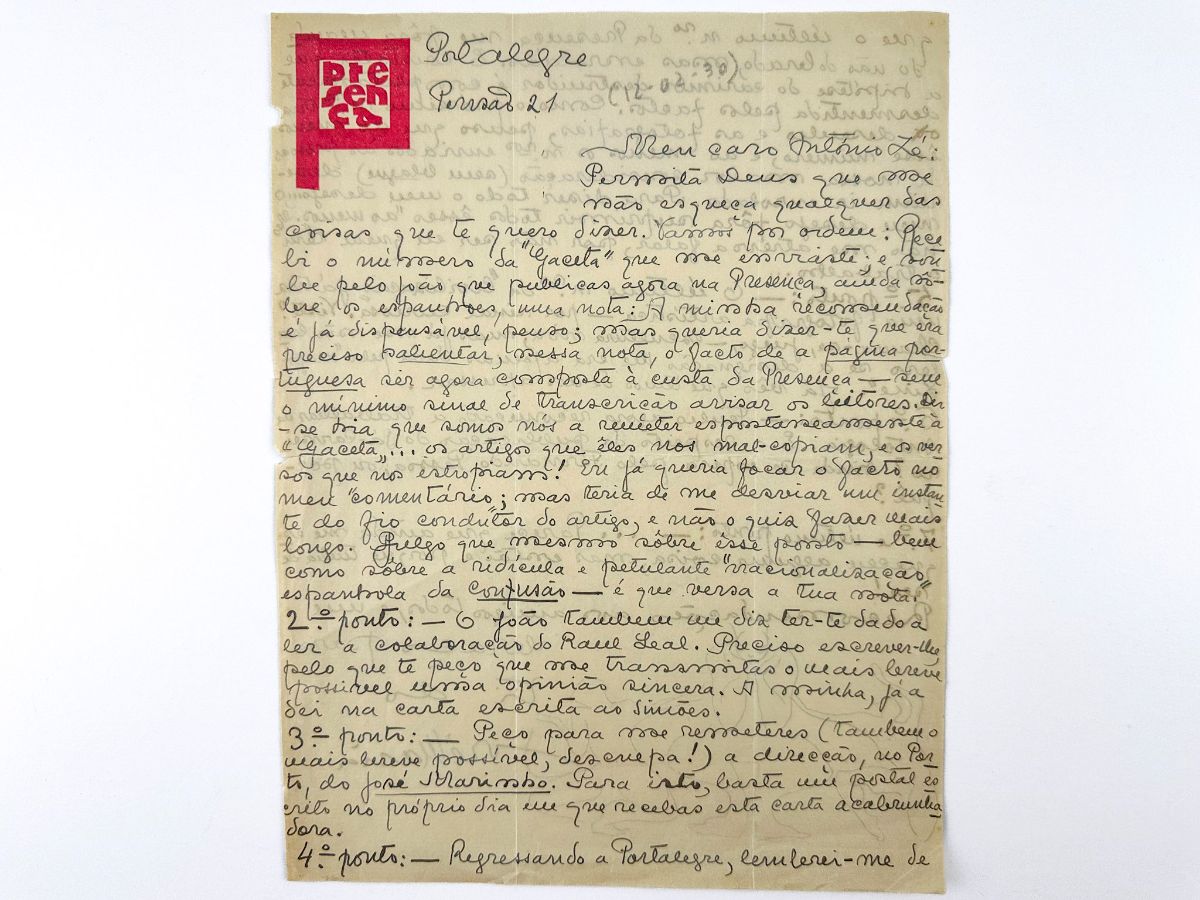 pre
sen
ça
Portalegre
Pensão 21
(12.04.30)
Meu caro António Zé:
Permita Deus que me
não esqueça qualquer das
coisas que te quero dizer. Vamos por ordem: Rece-
bi o número da "Gaceta" que me enviaste; e sou-
be pelo João que publicas agora na Presença, ainda sô-
bre os espanhoes, uma nota. A minha recomendação
é já dispensável, penso; mas queria dizer-te que era
preciso salientar, nessa nota, o facto de a página por-
tuguesa ser agora composta à custa da Presença — sem
o mínimo sinal de transcrição avisar os leitores. Dir-
-se-hia que somos nós a remeter espontaneamente à
"Gaceta"... os artigos que êles nos mal-copiam, e os ver-
sos que nos estropiam! Eu já queria focar o facto no
meu "comentário; mas teria de me desviar um instan-
te do fio condutor do artigo, e não o quis fazer mais
longo. Julgo que mesmo sôbre êsse ponto — bem
como sôbre a ridícula e petulante "nacionalização"
espanhola da confusão — é que versa a tua nota.
2.º ponto: — O João tambem me diz ter-te dado a
ler a colaboração do Raul Leal. Preciso escrever-lhe
pelo que te peço que me transmitas o mais breve
possível uma opinião sincera. A minha, já a
dei na carta escrita ao Simões.
3.º ponto: — Peço para me remeteres (tambem o
mais breve possível, desculpa!) a direcção, no Por-
to, do José Marinho. Para isto, basta um postal es-
crito no próprio dia em que recebas esta carta acabrunha-
dora.
4.º ponto: — Regressando a Portalegre, lembrei-me de